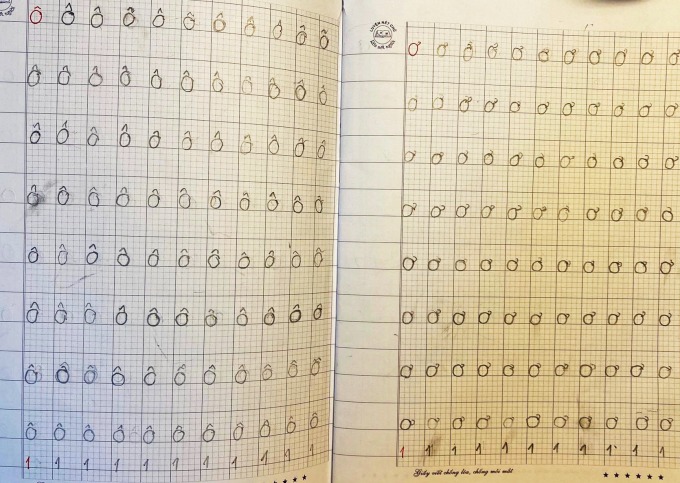 ô ô ô ô ô ô ô ô ô ô ô
ô ô ô ô ô ô ô ô ô ô ô
ô ô ô ô ô ô ô ô ô ô ô
ô ô ô ô ô ô ô ô ô ô ô
ô ô ô ô ô ô ô ô ô ô ô
ô ô ô ô ô ô ô ô ô ô ô
ô ô ô ô ô ô ô ô ô ô ô
ô ô ô ô ô ô ô ô ô ô ô
1 1 1 1 1 1 1 1 1 1 1
LUYỆN NÉT CHỮ
ơ ơ ơ ơ ơ ơ ơ ơ ơ ơ ơ
ơ ơ ơ ơ ơ ơ ơ ơ ơ ơ ơ
ơ ơ ơ ơ ơ ơ ơ ơ ơ ơ ơ
ơ ơ ơ ơ ơ ơ ơ ơ ơ ơ ơ
ơ ơ ơ ơ ơ ơ ơ ơ ơ ơ ơ
ơ ơ ơ ơ ơ ơ ơ ơ ơ ơ ơ
ơ ơ ơ ơ ơ ơ ơ ơ ơ ơ ơ
ơ ơ ơ ơ ơ ơ ơ ơ ơ ơ ơ
1 1 1 1 1 1 1 1 1 1 1
Giấy viết chống lóa, chống mỏi mắt